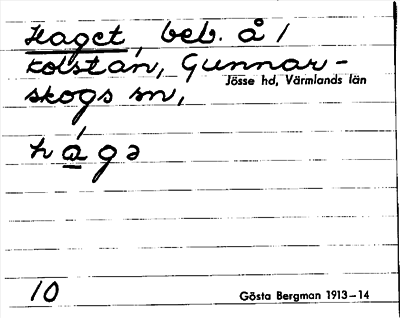 Haget, beb. å /
Kolstan, Gunnar-
Jösse hd, Värmlands län
skogs sn,
hágə
10
Gösta Bergman 1913–14